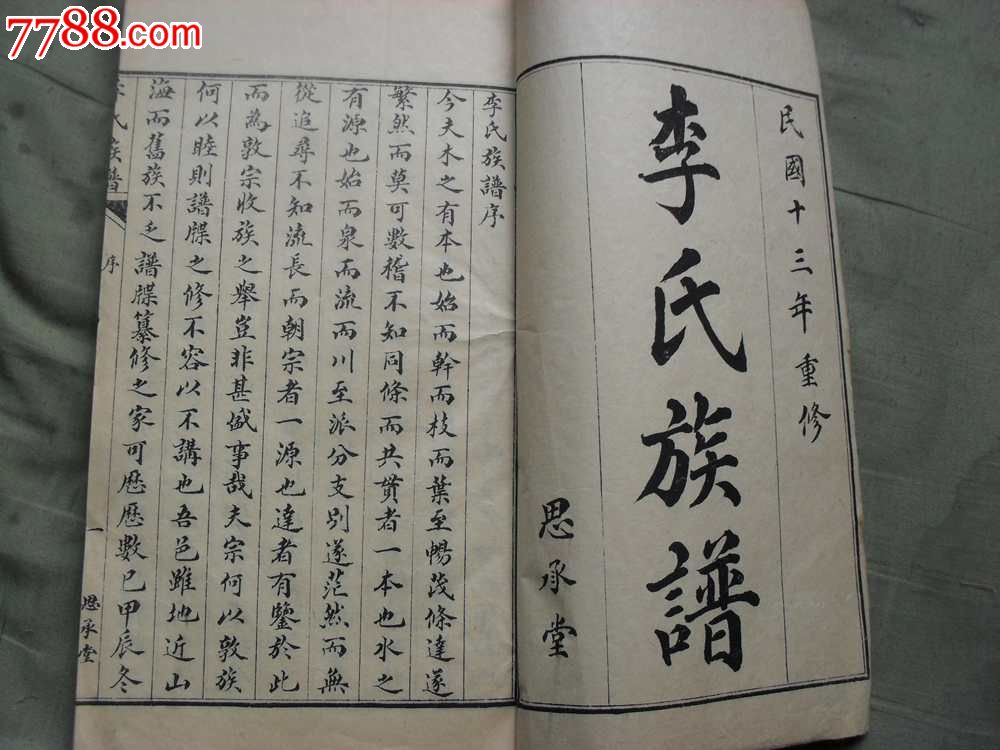 7788.com
民國十三年重修
李氏族譜
思承堂
李氏族譜序
今夫木之有本也始而幹而枝而葉至暢茂條達遂
繁然而莫可數稽不知同條而共貫者一本也水之
有源也始而泉而流而川至派分支别遂茫然而無
從追尋不知流長而朝宗者一源也達者有鑒於此
而為敦宗收族之舉豈非甚盛事哉夫宗何以敦族
何以睦則譜牒之修不容以不講也吾邑雖地近山
海而舊族不乏譜牒纂修之家可歷歷數已甲辰冬
李氏族譜
序
一
思承堂